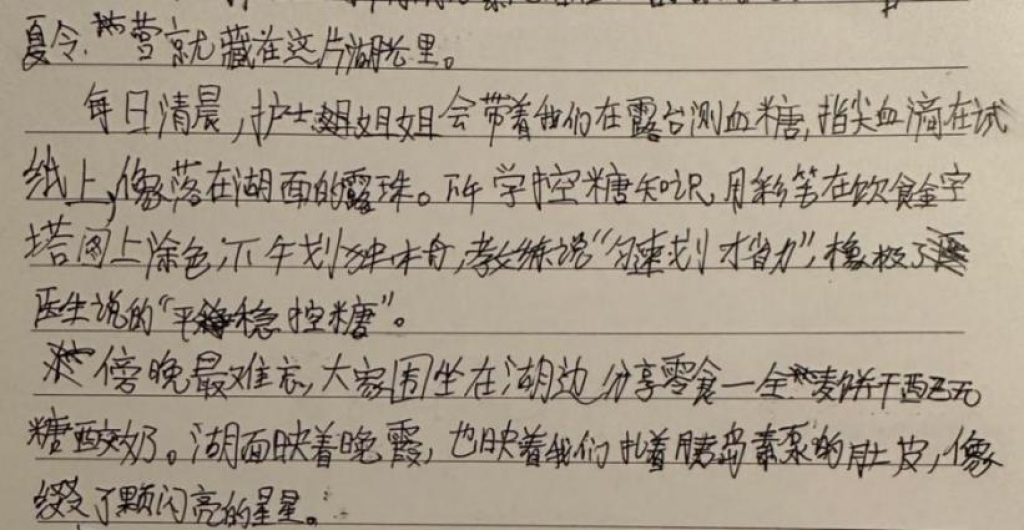 夏令营就藏在这片湖光里。
每日清晨,护士姐姐会带着我们在露台测血糖,指尖血滴在试
纸上,像落在湖面的露珠。上午学控糖知识,用彩笔在饮食金字
塔图上涂色,下午划独木舟,教练说“匀速划才省力”,像极了
医生说的“平稳控糖”。
傍晚最难忘,大家围坐在湖边分享零食—全麦饼干配无
糖酸奶。湖面映着晚霞,也映着我们扎着胰岛素泵的肚皮,像
缀了颗闪亮的星星。